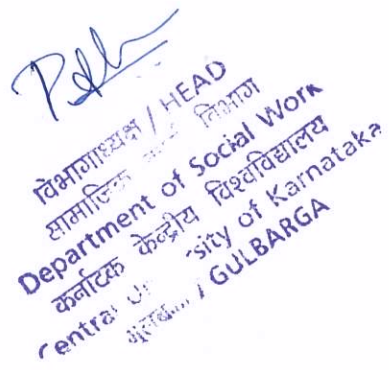 विभागाध्यक्ष / HEAD
सामाजिक कार्य विभाग
Department of Social Work
कर्नाटक केन्द्रीय विश्वविद्यालय
Central of Karnataka
/ GULBARGA